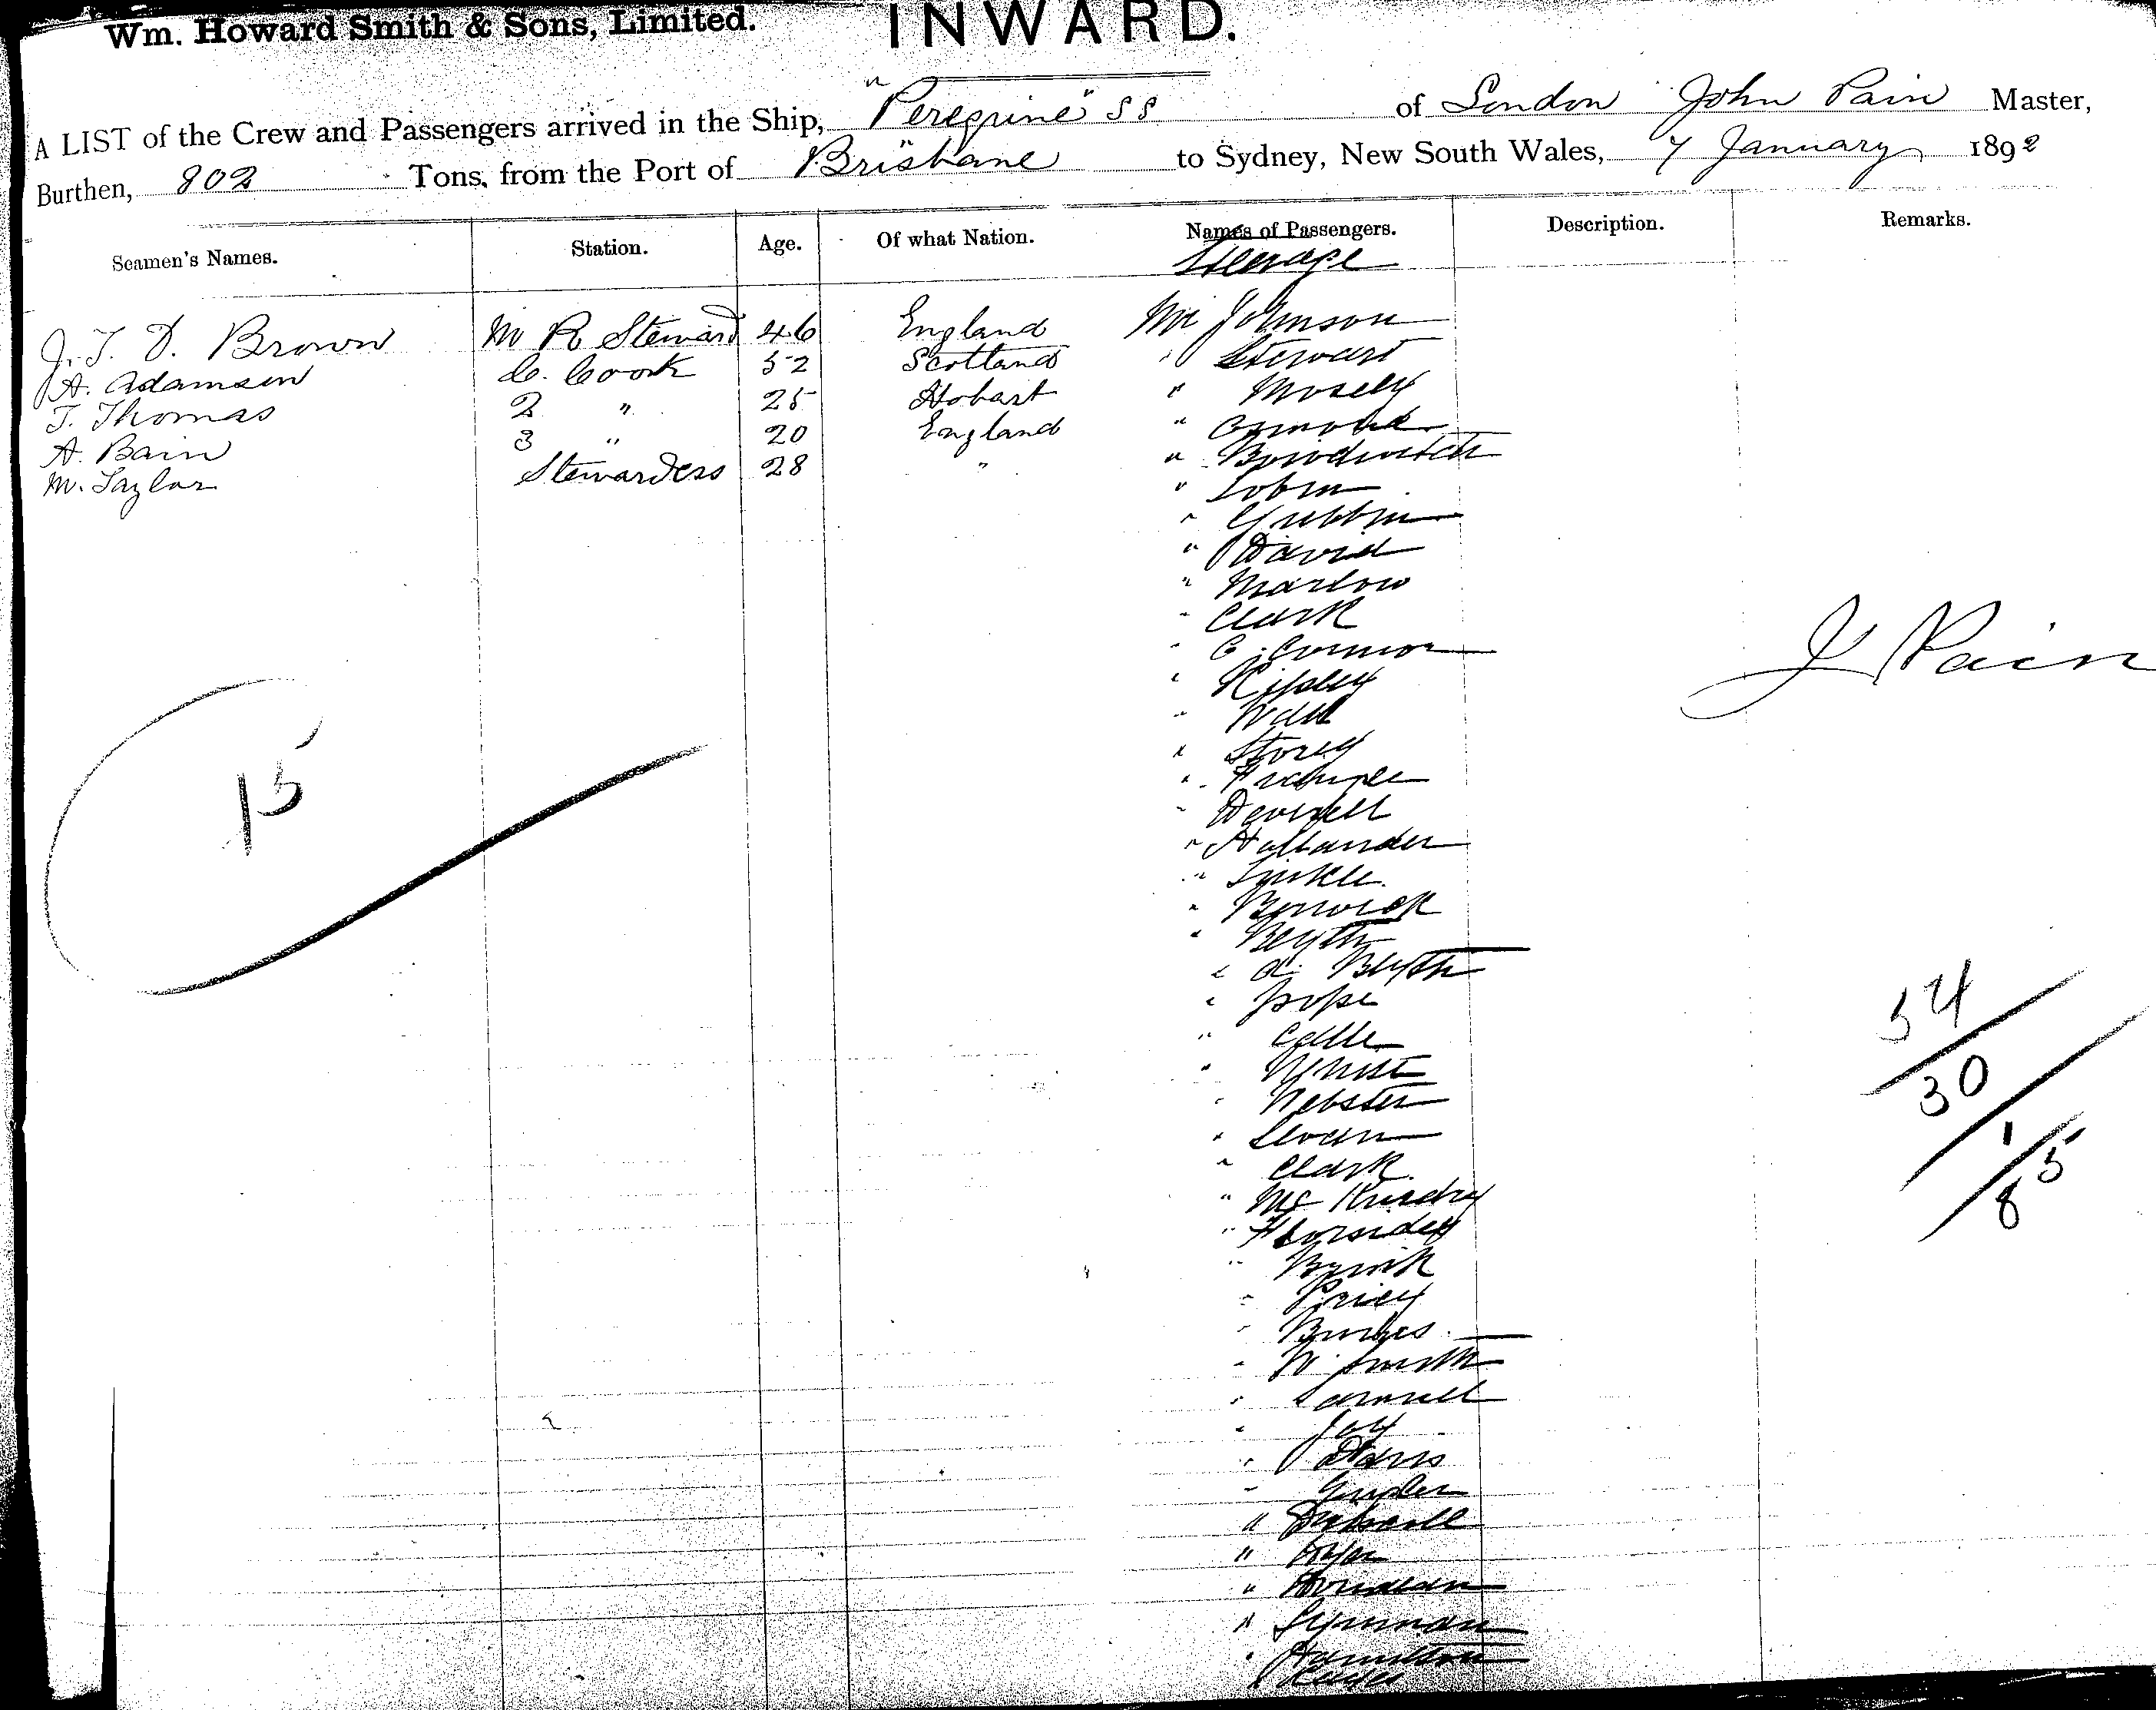 Wm. Howard Smith & Sons, Limited. INWARD.
A LIST of the Crew and Passengers arrived in the Ship, "Peregrine" SS of London John Pain Master,
Burthen, 802 Tons, from the Port of Brisbane to Sydney, New South Wales, 7 January 1892
Seamen's Names. Station. Age. Of what Nation. Names of Passengers. Description. Remarks.
Steerage
J. T. D. Brown M R Steward 46 England Mr Johnson
A. Adamson C. Cook 52 Scotland " Stewart
T. Thomas 2 " 25 Hobart " Mosely
A. Bain 3 " 20 England " Osmond
M. Taylor Stewardess 28 " " Bowditch
" Tobin
" Gribbin
" David
" Marlow
" Clark
" O'Connor
" Ripley
" Wall
" Storey
"
"
" Hollander
" Tinkle
" Berwick
" Blyth
" A. Blyth
" Pope
"
" White
" Webster
" Swan
" Clark
" Mc
"
"
" Pricey
" Burkes
" W. Smith
"
" Joy
" Davis
"
" Driscoll
"
"
"
" Hamilton
J Pain
15
54
30
1
5
8